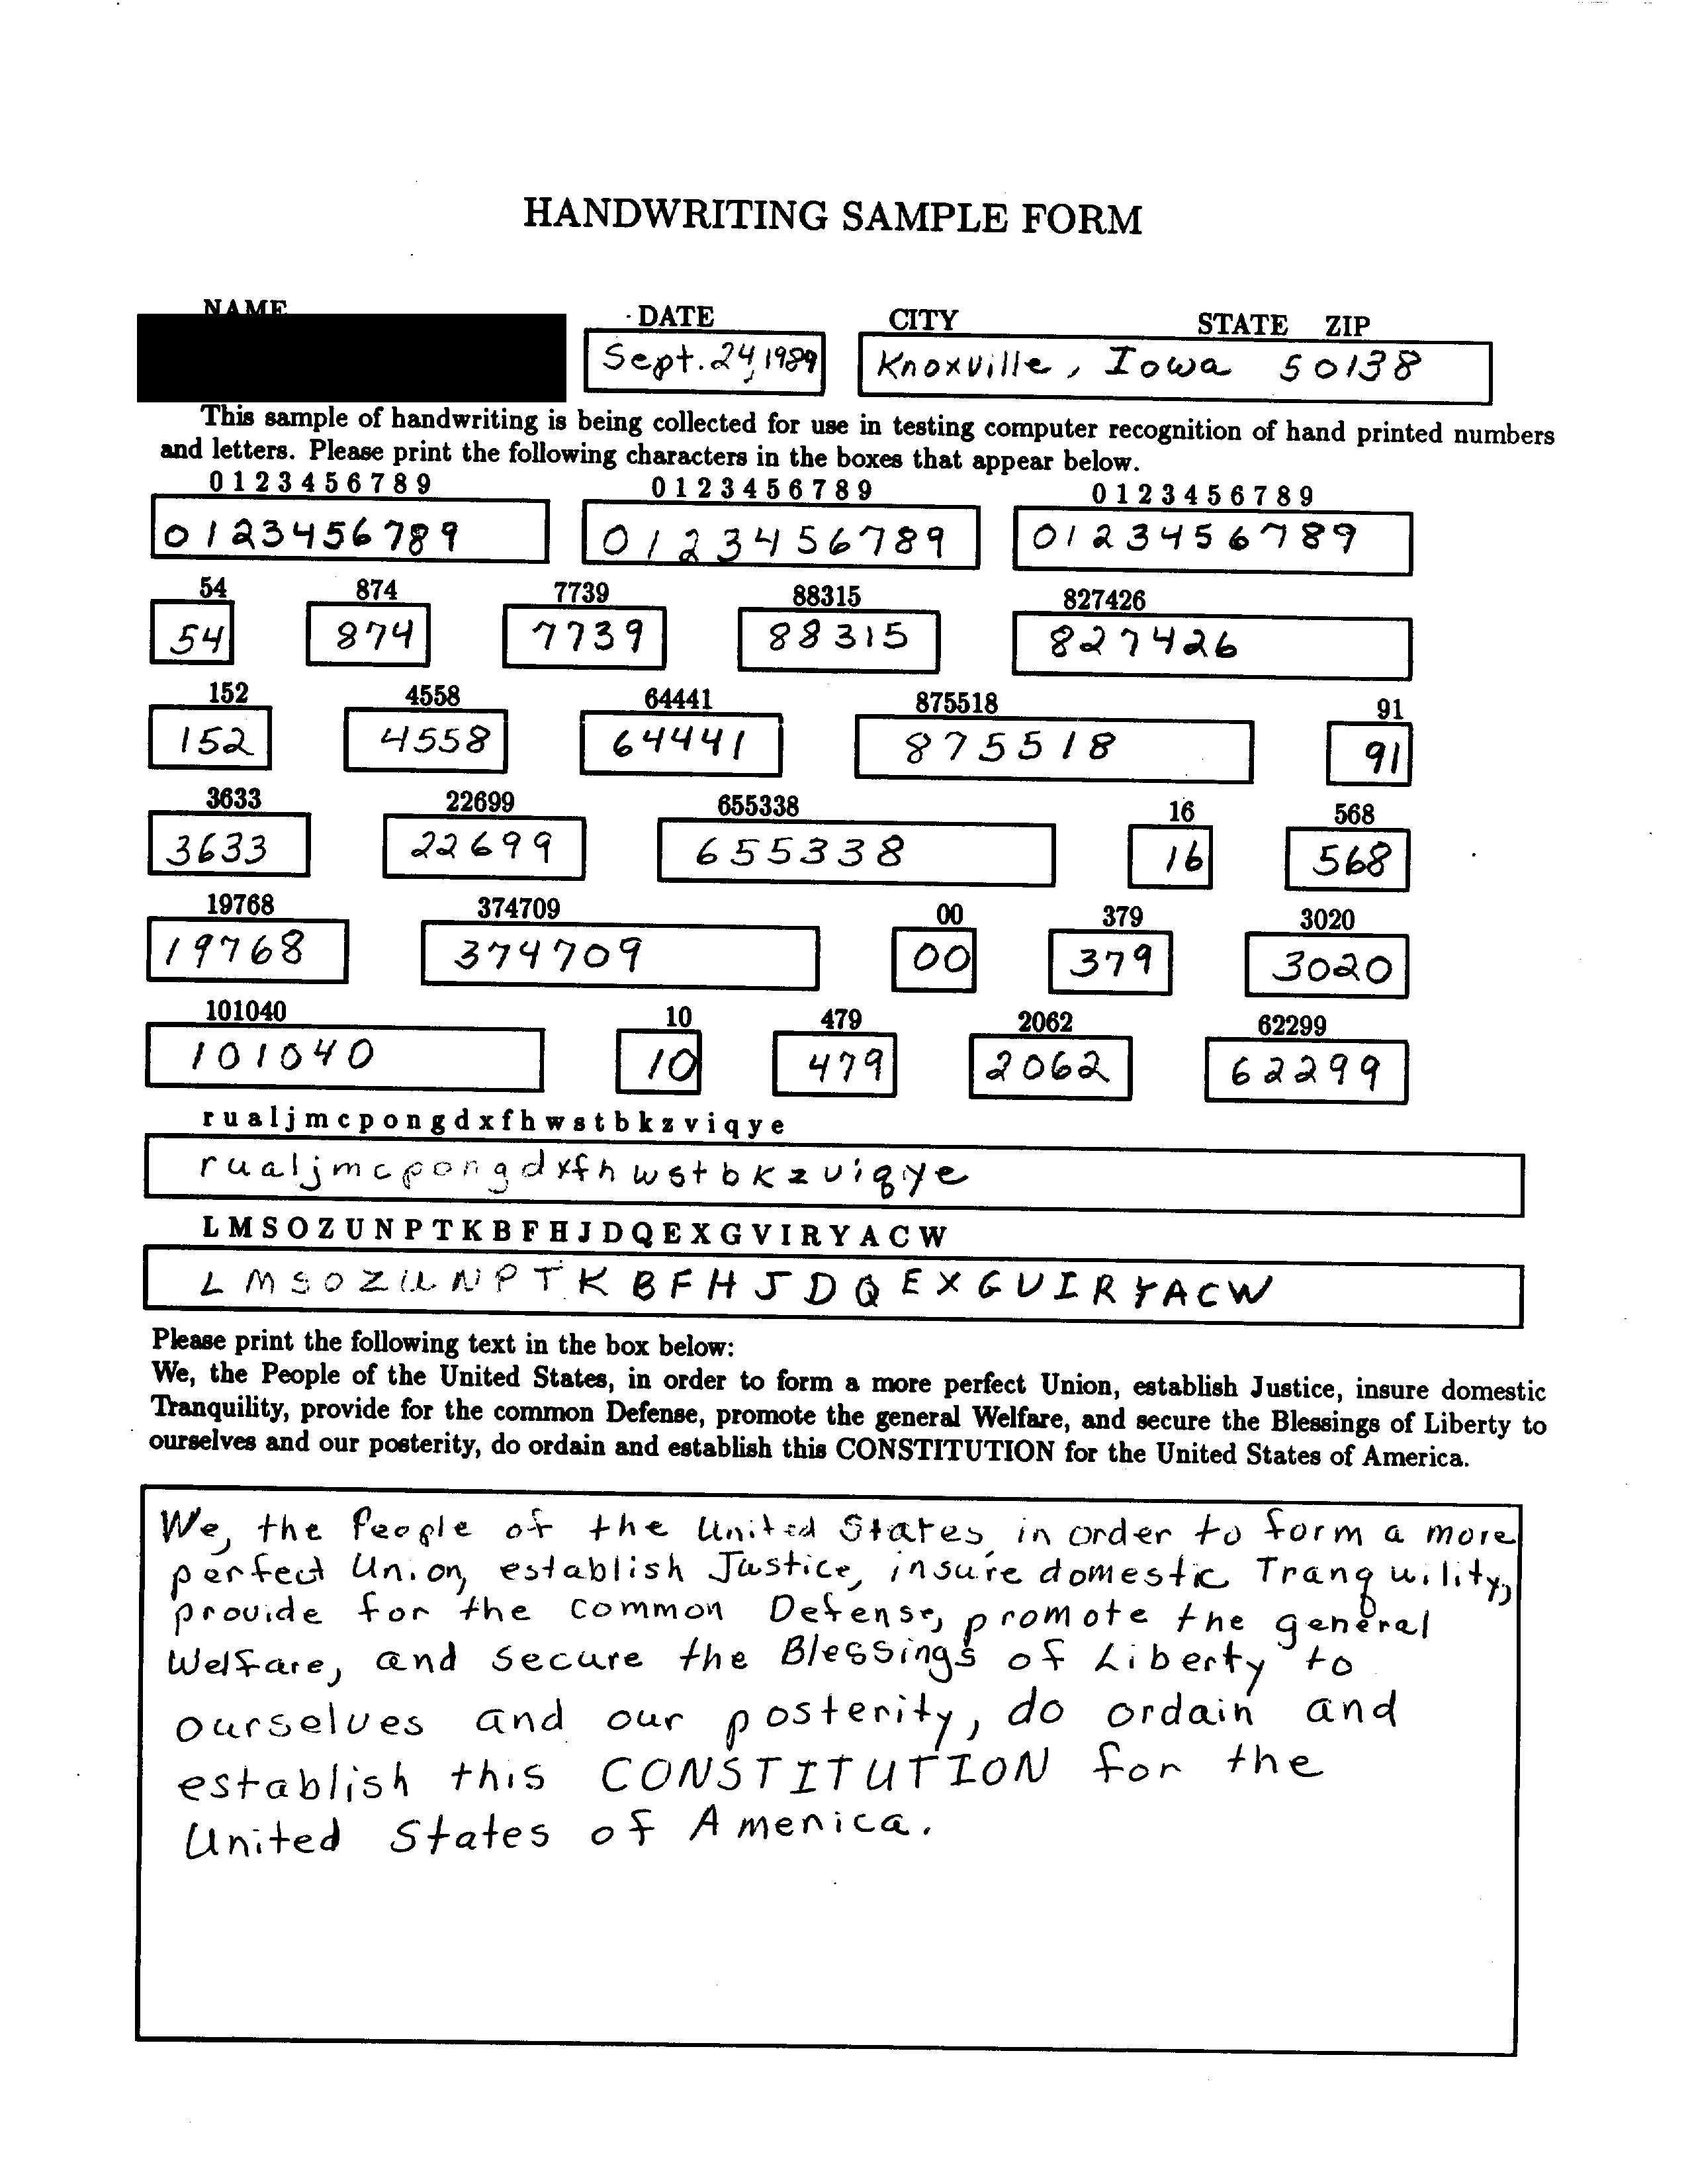 HANDWRITING SAMPLE FORM
NAME DATE CITY STATE ZIP
Sept. 24, 1989 Knoxville, Iowa 50138
This sample of handwriting is being collected for use in testing computer recognition of hand printed numbers
and letters. Please print the following characters in the boxes that appear below.
0 1 2 3 4 5 6 7 8 9 0 1 2 3 4 5 6 7 8 9 0 1 2 3 4 5 6 7 8 9
0123456789 0123456789 0123456789
54 874 7739 88315 827426
54 874 7739 88315 827426
152 4558 64441 875518 91
152 4558 64441 875518 91
3633 22699 655338 16 568
3633 22699 655338 16 568
19768 374709 00 379 3020
19768 374709 00 379 3020
101040 10 479 2062 62299
101040 10 479 2062 62299
r u a l j m c p o n g d x f h w s t b k z v i q y e
r u a l j m c p o n g d x f h w s t b k z v i q y e
L M S O Z U N P T K B F H J D Q E X G V I R Y A C W
L M S O Z U N P T K B F H J D Q E X G V I R Y A C W
Please print the following text in the box below:
We, the People of the United States, in order to form a more perfect Union, establish Justice, insure domestic
Tranquility, provide for the common Defense, promote the general Welfare, and secure the Blessings of Liberty to
ourselves and our posterity, do ordain and establish this CONSTITUTION for the United States of America.
We, the People of the United States, in order to form a more
perfect Union, establish Justice, insure domestic Tranquility,
provide for the common Defense, promote the general
Welfare, and secure the Blessings of Liberty to
ourselves and our posterity, do ordain and
establish this CONSTITUTION for the
United States of America.